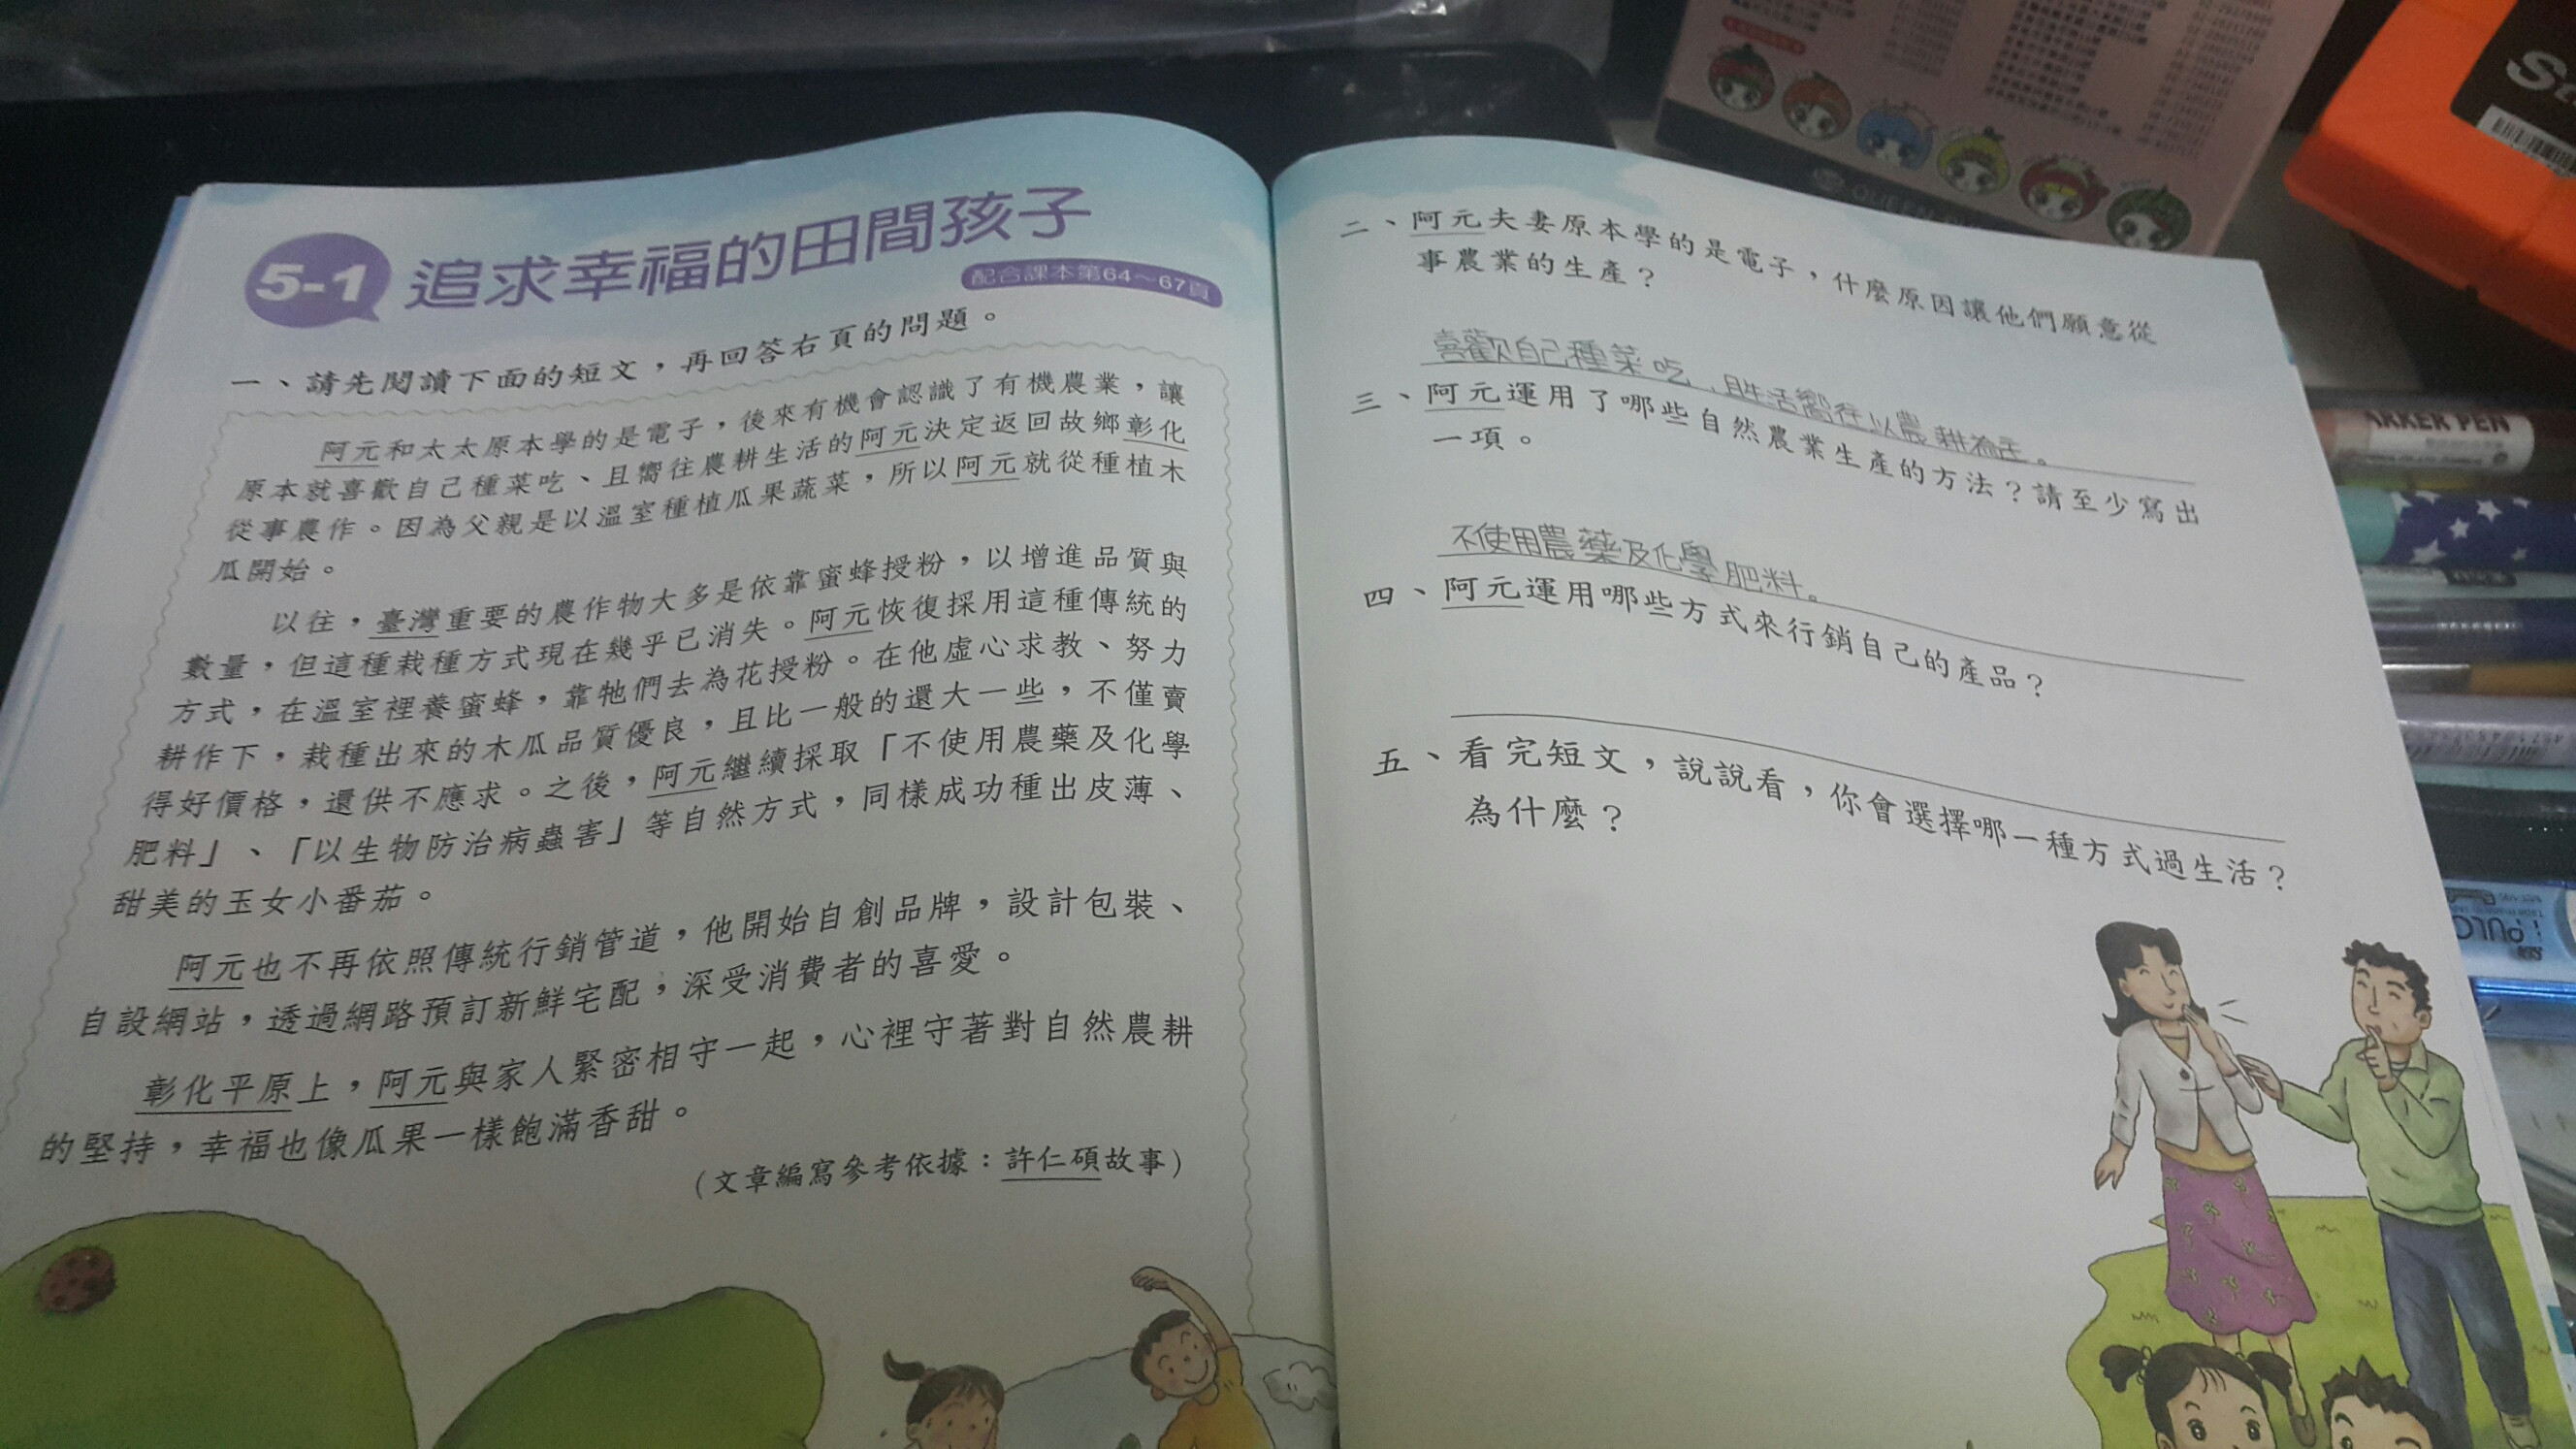 5-1 追求幸福的田間孩子
配合課本第64～67頁
一、請先閱讀下面的短文，再回答右頁的問題。
阿元和太太原本學的是電子，後來有機會認識了有機農業，讓
原本就喜歡自己種菜吃、且嚮往農耕生活的阿元決定返回故鄉彰化
從事農作。因為父親是以溫室種植瓜果蔬菜，所以阿元就從種植木
瓜開始。
以往，臺灣重要的農作物大多是依靠蜜蜂授粉，以增進品質與
數量，但這種栽種方式現在幾乎已消失。阿元恢復採用這種傳統的
方式，在溫室裡養蜜蜂，靠牠們去為花授粉。在他虛心求教、努力
耕作下，栽種出來的木瓜品質優良，且比一般的還大一些，不僅賣
得好價格，還供不應求。之後，阿元繼續採取「不使用農藥及化學
肥料」、「以生物防治病蟲害」等自然方式，同樣成功種出皮薄、
甜美的玉女小番茄。
阿元也不再依照傳統行銷管道，他開始自創品牌，設計包裝、
自設網站，透過網路預訂新鮮宅配，深受消費者的喜愛。
彰化平原上，阿元與家人緊密相守一起，心裡守著對自然農耕
的堅持，幸福也像瓜果一樣飽滿香甜。
（文章編寫參考依據：許仁碩故事）
二、阿元夫妻原本學的是電子，什麼原因讓他們願意從
事農業的生產？
喜歡自己種菜吃，且生活嚮往以農耕為主。
三、阿元運用了哪些自然農業生產的方法？請至少寫出
一項。
不使用農藥及化學肥料。
四、阿元運用哪些方式來行銷自己的產品？
五、看完短文，說說看，你會選擇哪一種方式過生活？
為什麼？
ARKER PEN